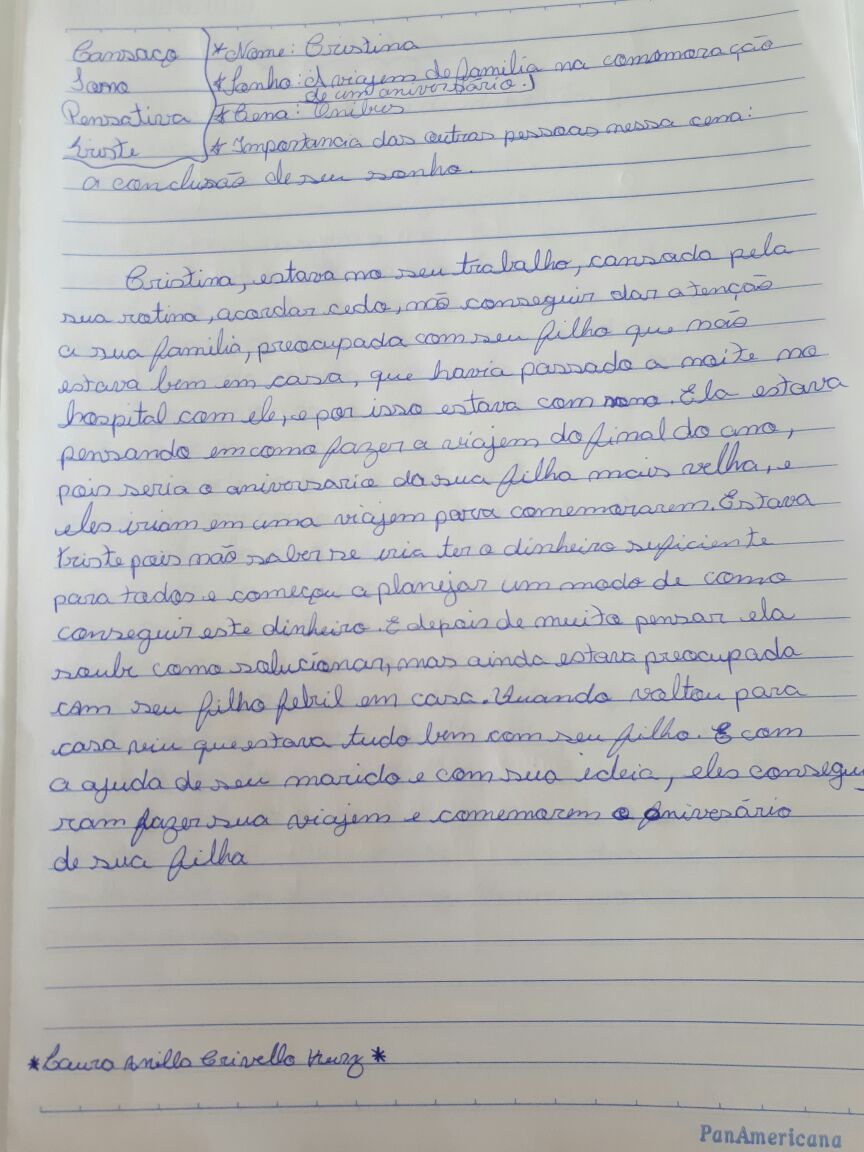 Cansaço
Sono
Pensativa
triste
* Nome: Cristina
* Sonho: A viajem de familia na comomoração
de um aniversário.
* Cena: Onibus
* Importancia das outras pessoas nessa cena:
a conclusão de seu sonho.
Cristina, estava no seu trabalho, cansada pela
sua rotina, acordar cedo, não conseguir dar atenção
a sua familia, preocupada com seu filho que não
estava bem em casa, que havia passado a noite no
hospital com ele, e por isso estava com sono. Ela estava
pensando em como fazer a viajem do final do ano,
pois seria o aniversario da sua filha mais velha, e
eles iriam em uma viajem para comemorarem. Estava
triste pois não saber se iria ter o dinheiro suficiente
para todos e começou a planejar um modo de como
conseguir este dinheiro. E depois de muito pensar ela
soube como solucionar, mas ainda estava preocupada
com seu filho febril em casa. Quando voltou para
casa viu que estava tudo bem com seu filho. E com
a ajuda de seu marido e com sua ideia, eles consegui
ram fazer sua viajem e comemorem o aniversário
de sua filha
* Laura Crivello *
PanAmericana